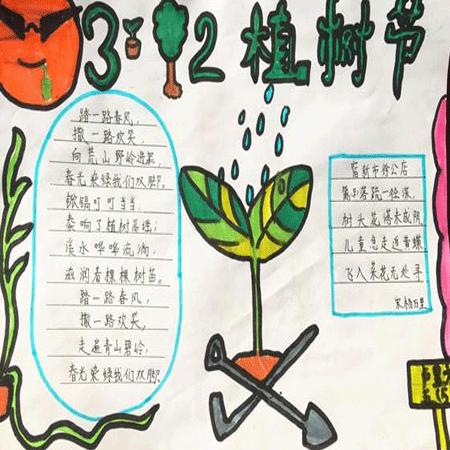 3·12植树节
踏一路春风,
撒一路欢笑,
向荒山野岭进军,
春光染绿我们双脚。
锹镐叮叮当当,
奏响了植树
清水哗哗流淌,
滋润着棵棵树苗。
踏一路春风,
撒一路欢笑,
走遍青山碧岭,
春光染绿我们双脚。
宿新市徐公店
篱落疏疏一径深,
树头花落未成阴,
儿童急走追黄蝶,
飞入菜花无处寻
宋 杨万里